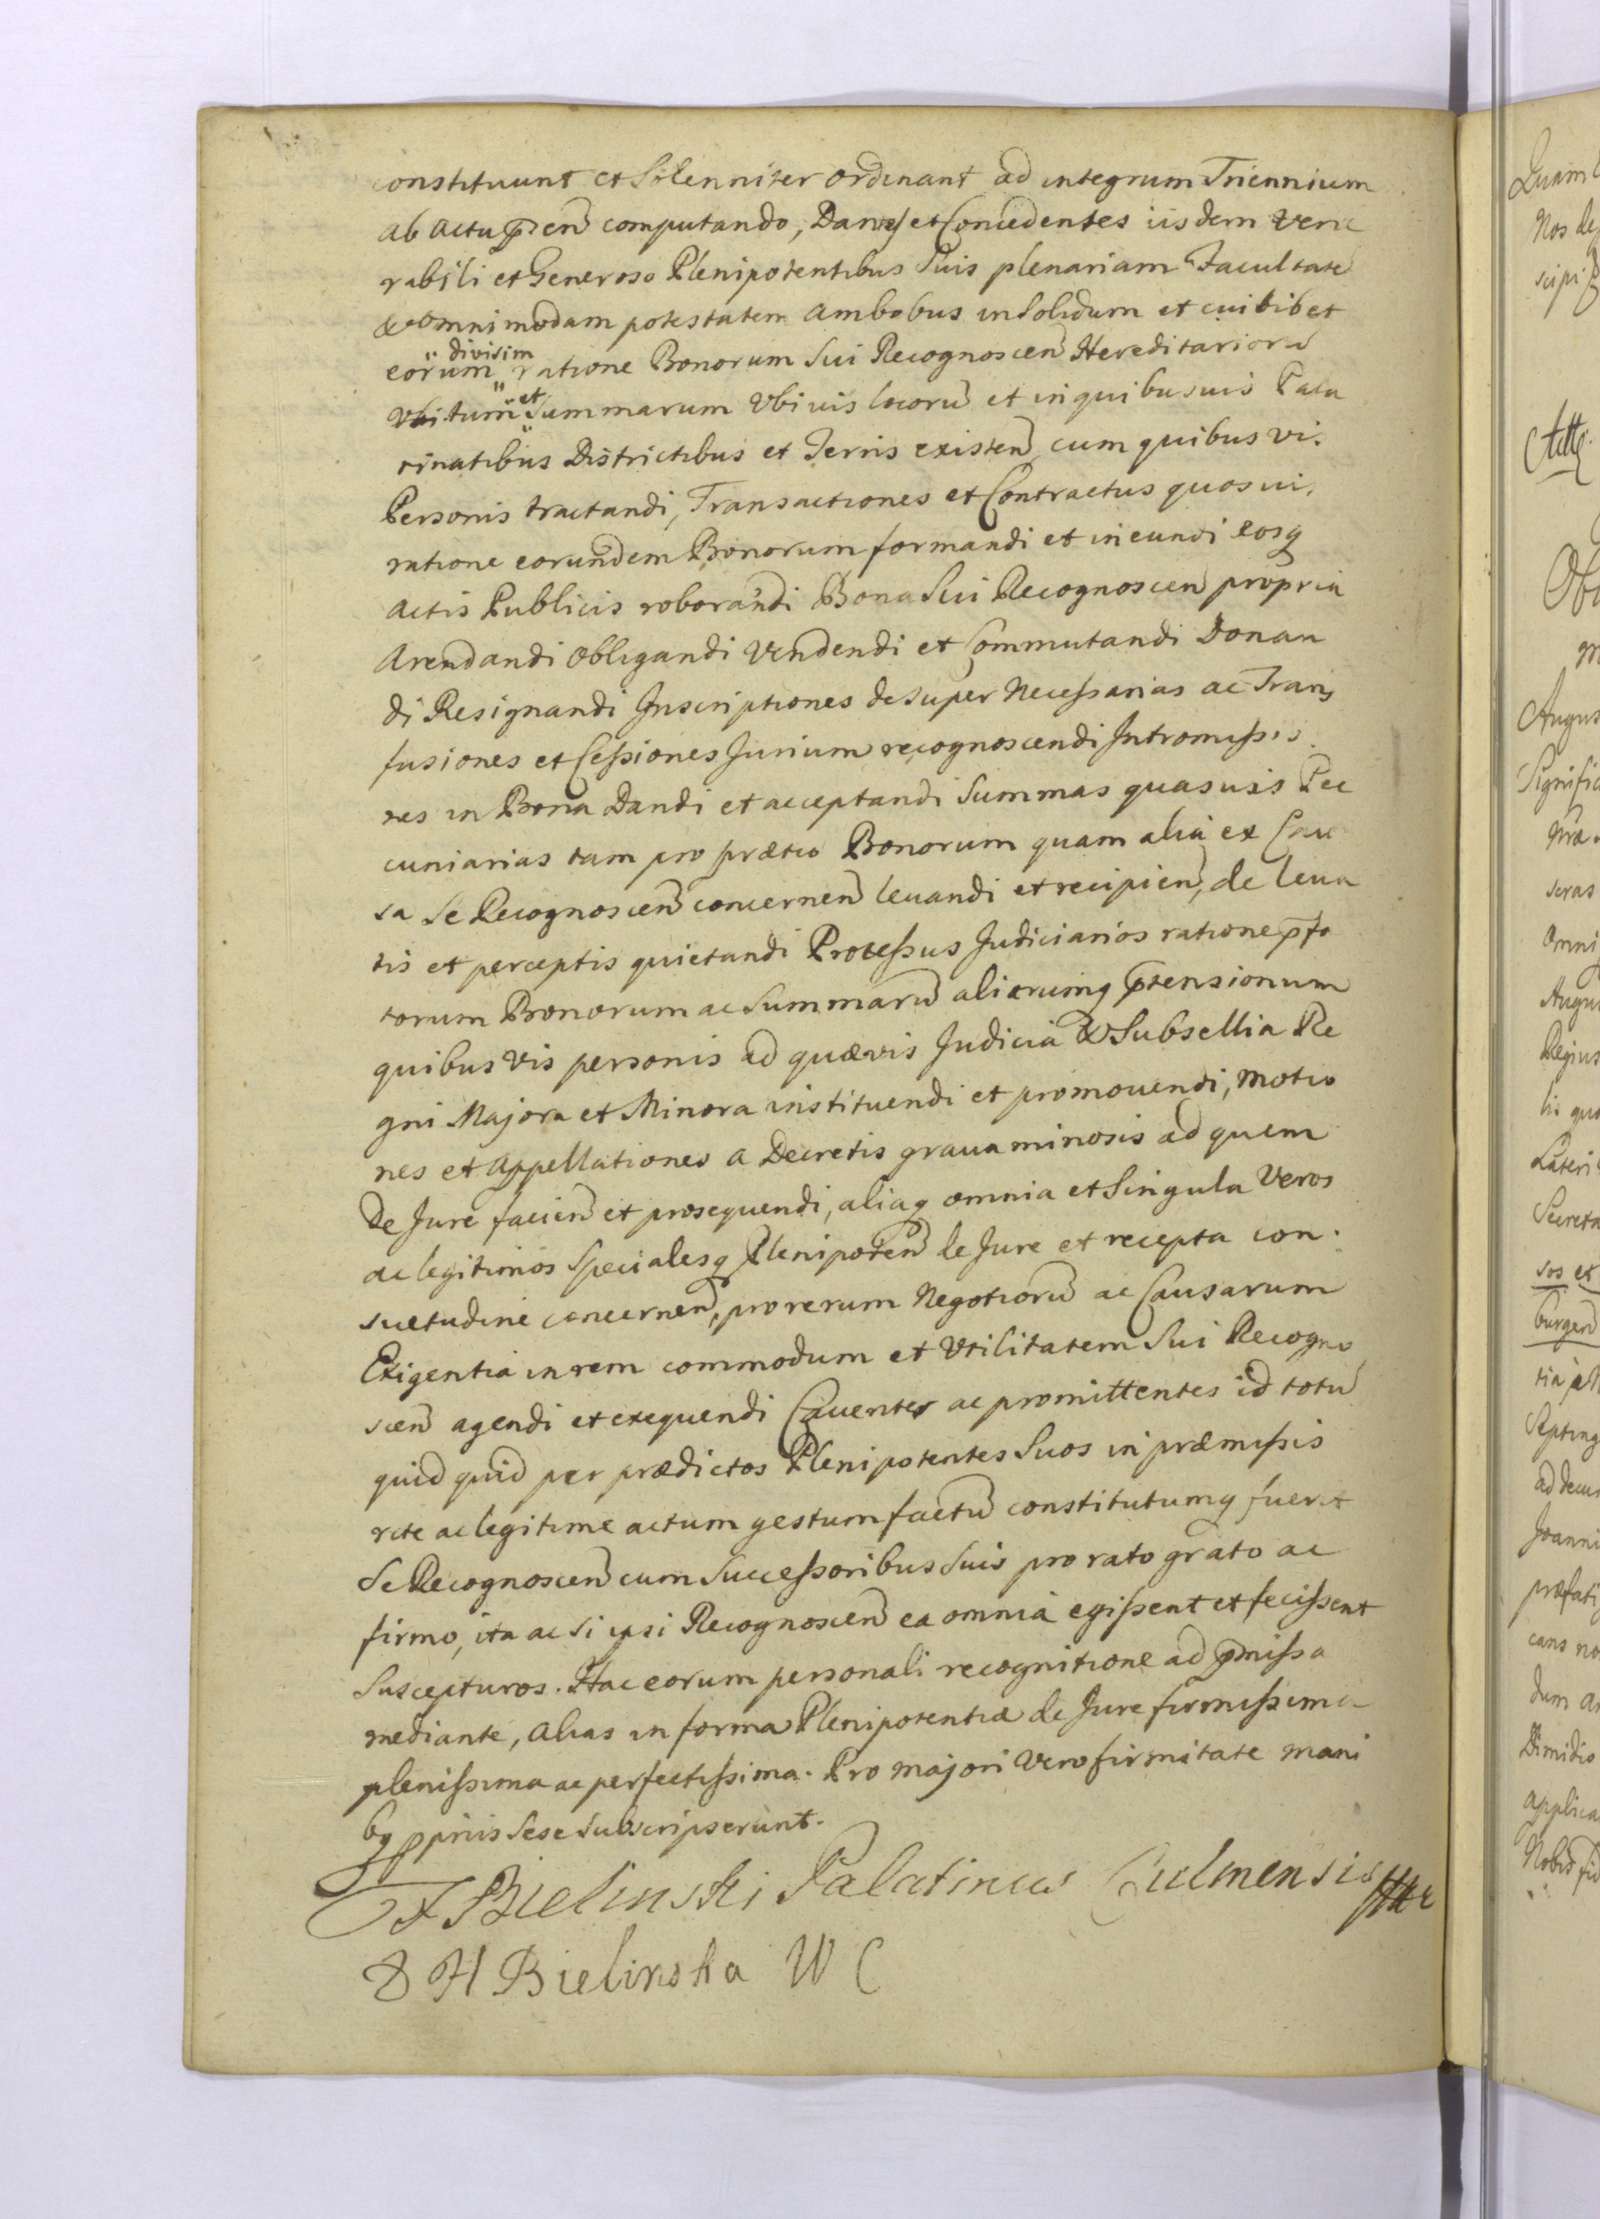 constituunt et Solenniter ordinant ad integrum Triennium
ab actu p̃ñ computando, Dantes et Concedentes iisdem Vene
rabili et Generoso Plenipotentibus Suis plenariam Facultatẽ
et omnimodam potestatem ambobus in Solidum et cuilibet
divisim
eorum ratione Bonorum Sui Recognosceñ Hereditariorũ
et
Summarum Vbiuis locorũ et in quibusuis Pala
tinatibus Districtibus et Terris existeñ cum quibus vi.
Personis tractandi, Transactiones et Contractus quosui.
ratione eorundem Bonorum formandi et in eundi eosq
actis Publicis roborandi Bona Sui Recognosceñ propria
Arendandi Obligandi Vendendi et Commutandi Donan
di Resignandi Inscriptiones desuper Necessarias ac Trans
fusiones et Cessiones Jurium recognoscendi Intromissio
nes in Bona Dandi et acceptandi Summas quasuis Pec
cuniarias tam pro prætio Bonorum quam alia ex Cau
sa Se Recognosceñ concerneñ leuandi et recipieñ, de leua
tis et perceptis quietandi Processus Judiciarios ratione p̃fa
torum Bonorum ac Summarũ aliarumq p̃tensionum
quibus vis personis ad quævis Judicia et Subsellia Re
gni Majora et Minora instituendi et promouendi, motio
nes et Appellationes a Decretis grauaminosis ad quem
de Jure facieñ et prosequendi, aliaq omnia et Singula Veros
ac legitimos Specialesq Plenipoteñ de Jure et recepta con.
suetudine concerneñ, pro rerum Negotiorũ ac Causarum
Exigentia in rem commodum et Vtilitatem Sui Recogno
sceñ agendi et exequendi Cauentes ac promittentes id totũ
quid quid per prædictos Plenipotentes Suos in præmissis
rite ac legitime actum gestum factũ constitutumq fuerit
Se Recognosceñ cum Successoribus Suis pro rato grato ac
firmo, ita ac si ipsi Recognosceñ ea omnia egissent et fecissent
Suscepturos. Hac eorum personali recognitione ad p̃missa
mediante, alias in forma Plenipotentiæ de Jure firmissima
plenissima ac perfectissima. Pro majori Vero firmitate mani
bq ppriis Sese Subscripserunt.
F Bielinski Palatinus Culmensis
H Bielinska W C
Quam
Nos de
scipi
Augus
Signific
seras
omni
Augu
Regius
lis qua
Lateri
Secreta
sos et
burgen
tia
Septing
ad decu
Joanni
præfati
cans no
dum
Dimidio
applica
Nobis fid